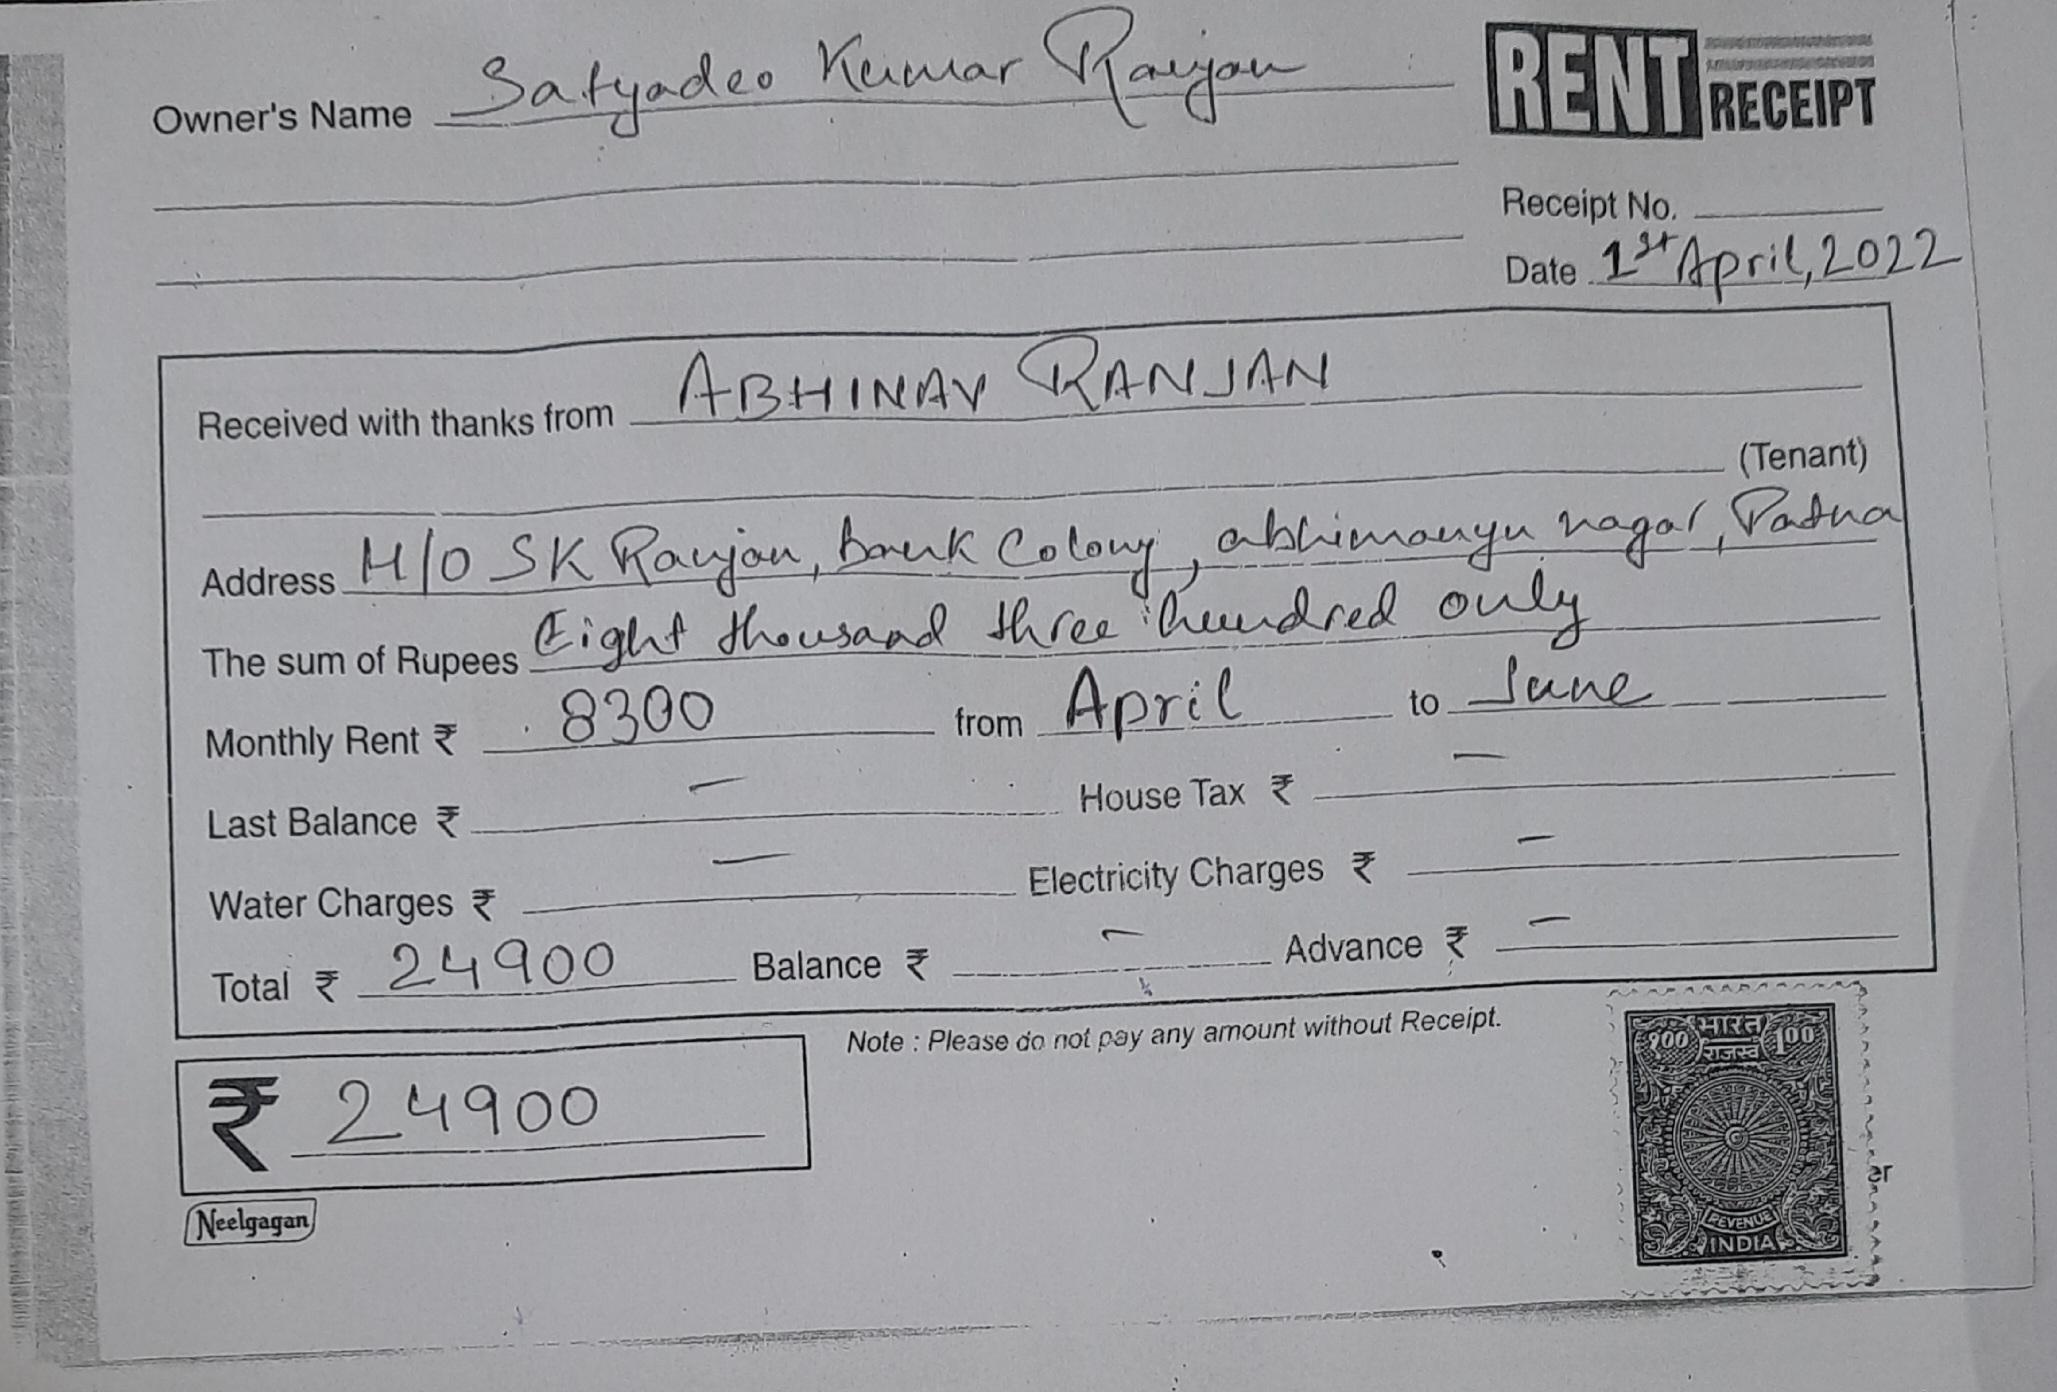 Owner's Name Satyadeo Kumar Ranjan
RENT RECEIPT
Receipt No.
Date 1st April, 2022
Received with thanks from ABHINAV RANJAN
(Tenant)
Address H/O SK Ranjan, Bank Colony, abhimanyu nagar, Patna
The sum of Rupees Eight thousand three hundred only
Monthly Rent ₹ 8300 from April to June
Last Balance ₹ — House Tax ₹ —
Water Charges ₹ — Electricity Charges ₹ —
Total ₹ 24900 Balance ₹ — Advance ₹ —
Note : Please do not pay any amount without Receipt.
₹ 24900
Neelgagan
१०० भारत 100
राजस्व
REVENUE
INDIA